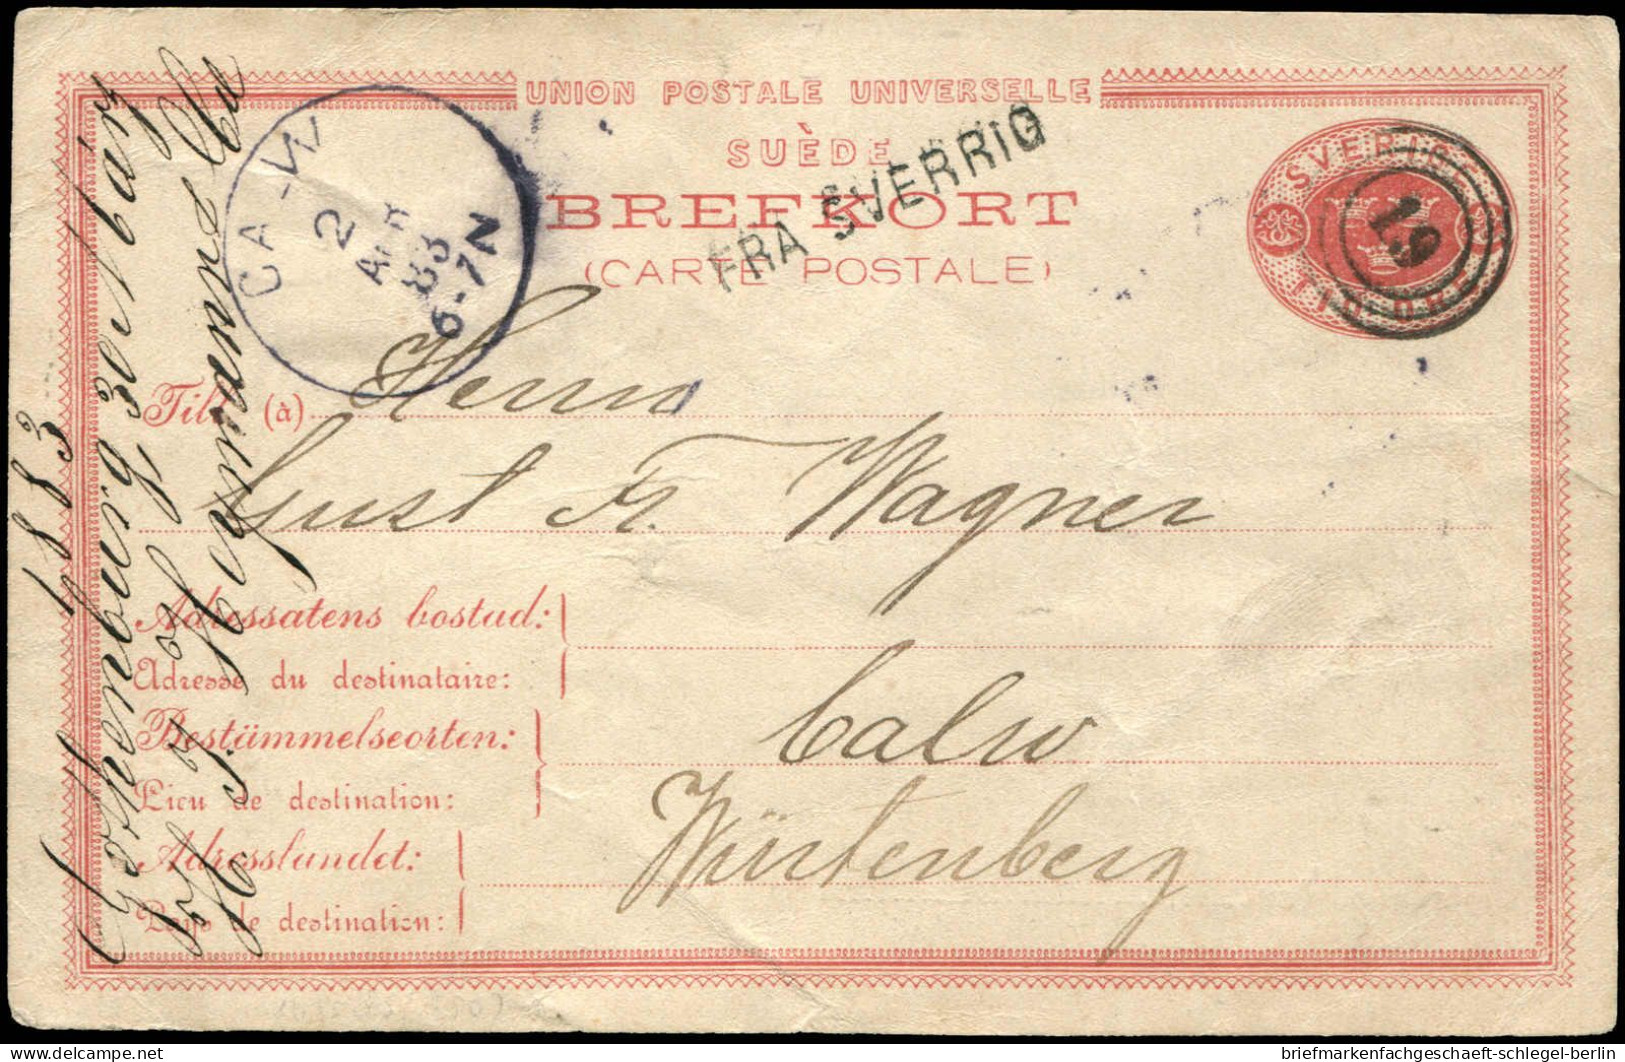 UNION POSTALE UNIVERSELLE
SUÈDE
BREFKORT
(CARTE POSTALE)
FRA SVERRIG
SVERIGE
TIO ÖRE
19
CALW
2
Apr
83
6-7N
Till (à)
Herrn
Gust Fr. Wagner
Adressatens bostad:
Adresse du destinataire:
Bestämmelseorten:
Lieu de destination:
Calw
Adresslandet:
Pays de destination:
Würtenberg
Gothenburg, 30 März
1883
Heymann
briefmarkenfachgeschaeft-schlegel-berlin